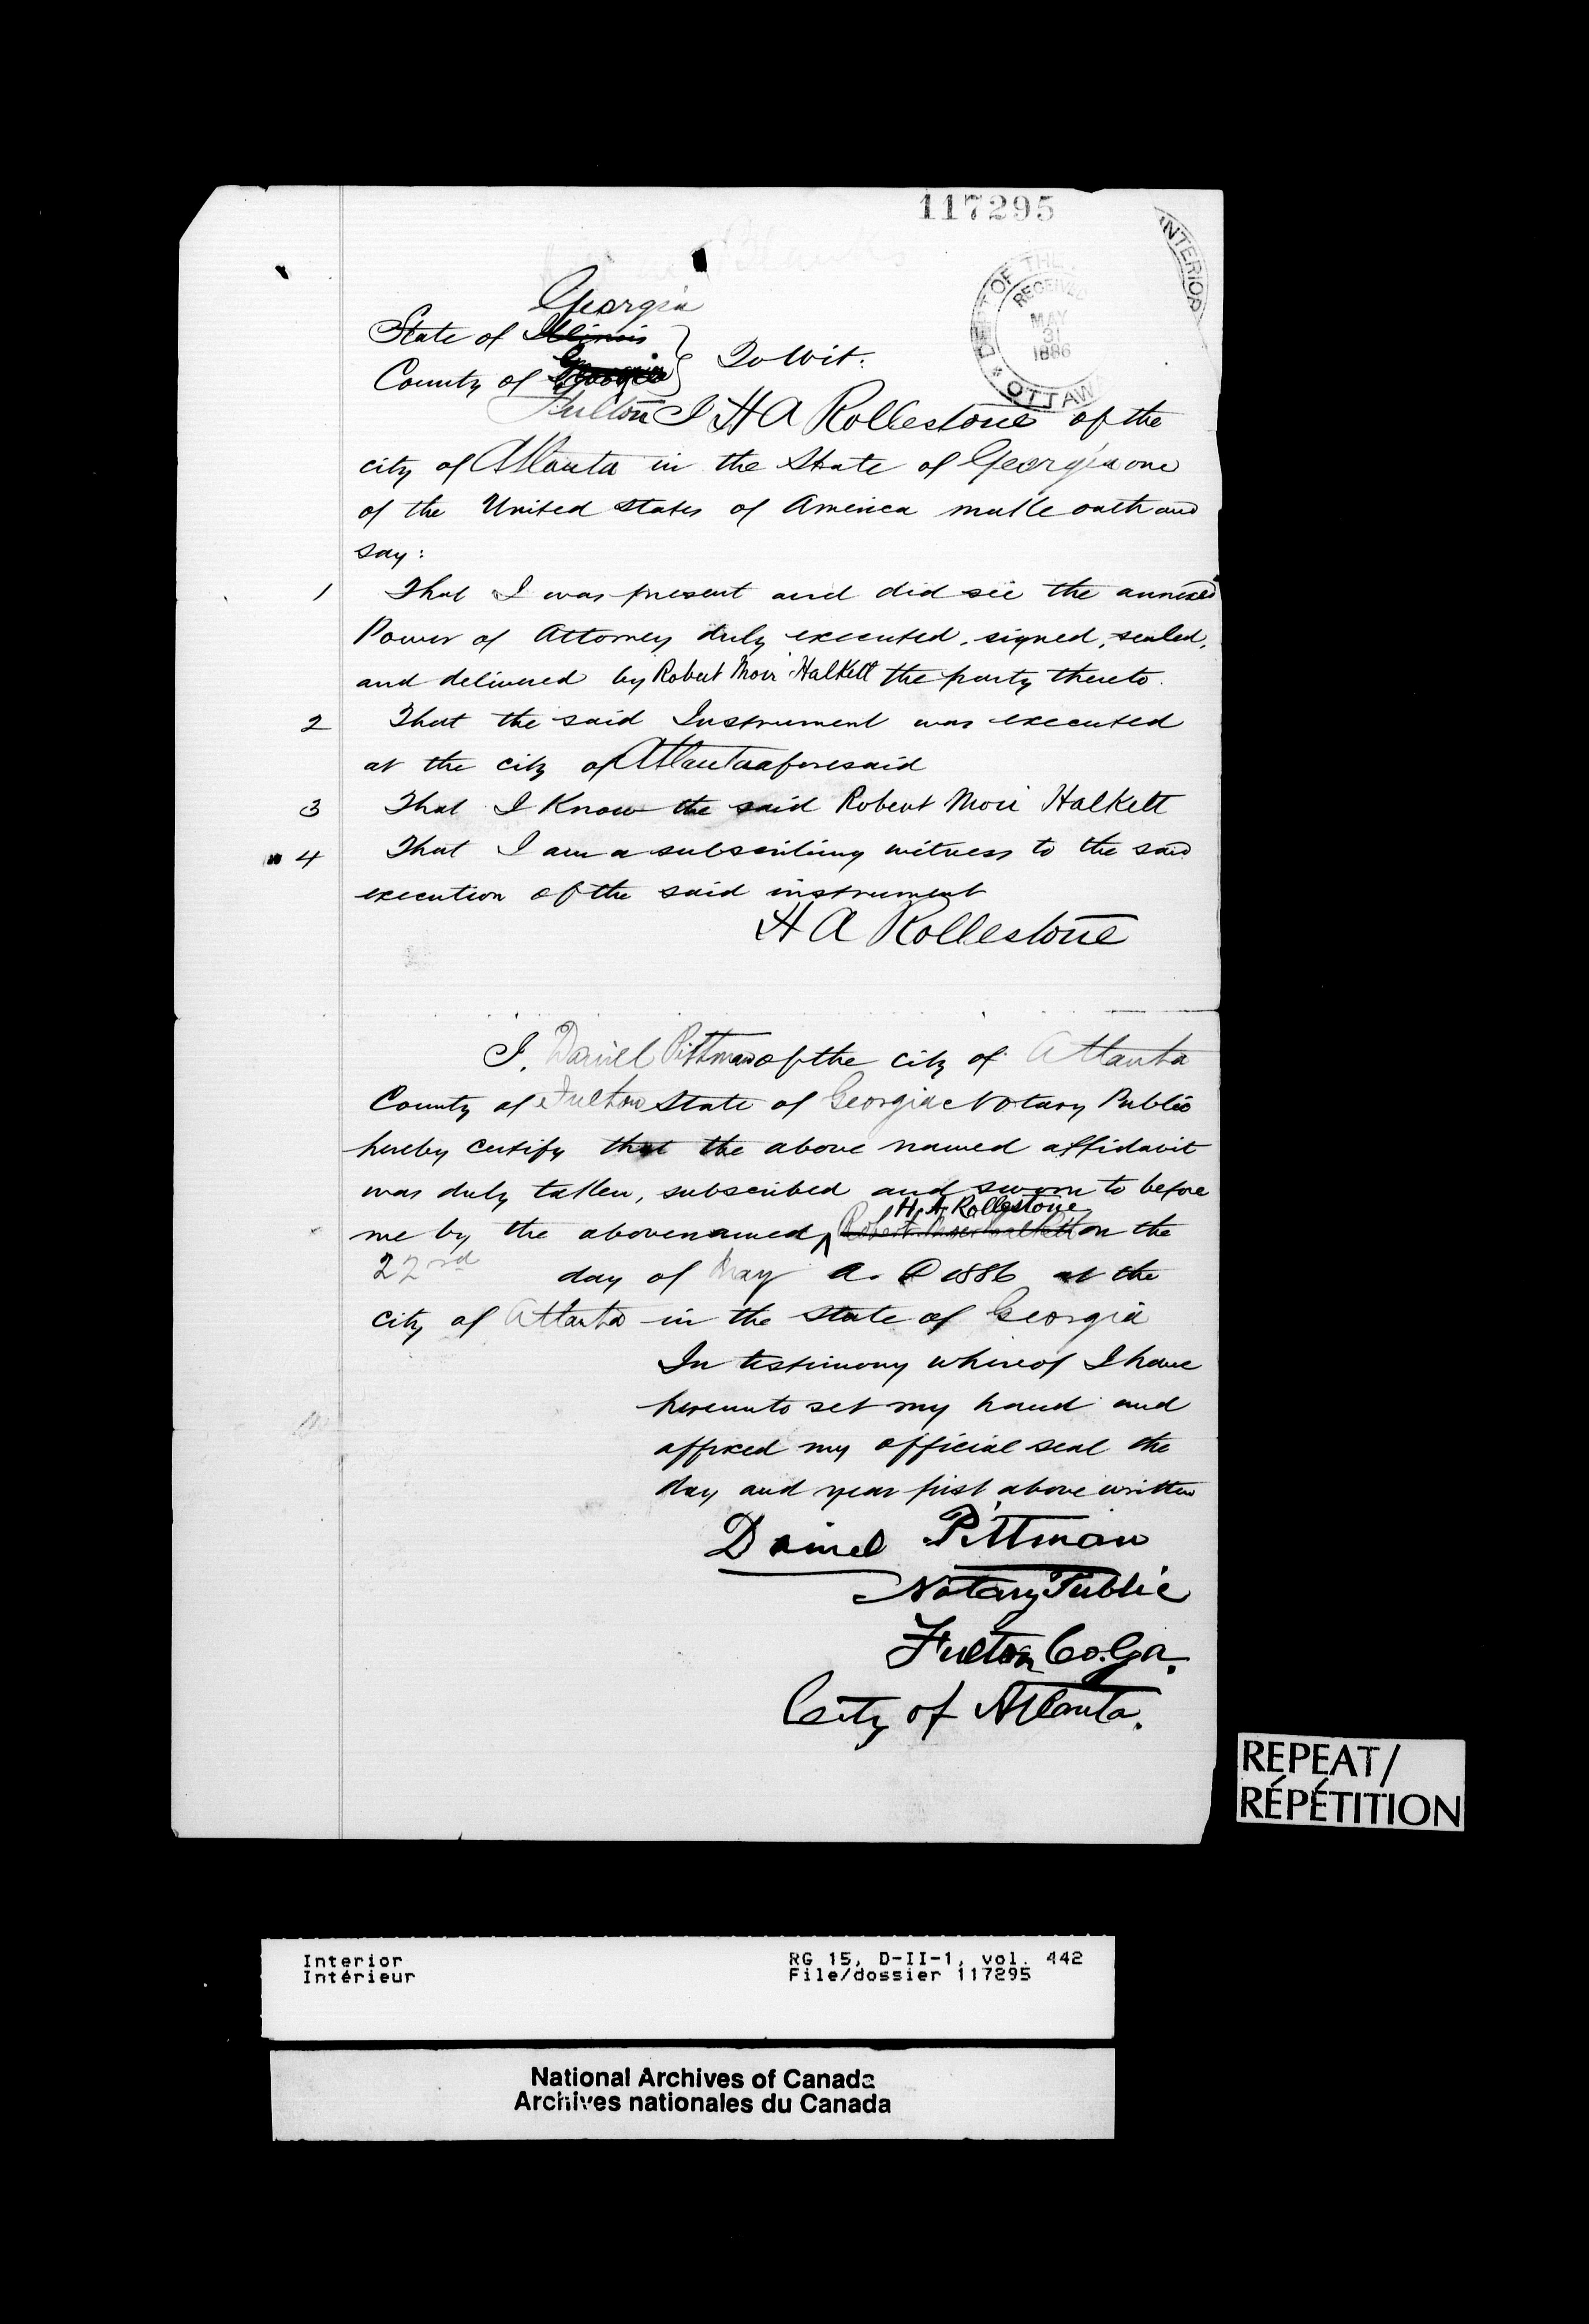 117295
Blanks
INTERIOR
DEPT OF THE
RECEIVED
MAY
31
1886
OTTAWA
Georgia
State of Illinois
County of Georgia } To Wit:
Fulton I H A Rollestone of the
city of Atlanta in the State of Georgia one
of the United States of America make oath and
say:
1 That I was present and did see the annexed
Power of Attorney duly executed, signed, sealed,
and delivered by Robert Moir Halkett the party thereto.
2 That the said Instrument was executed
at the city of Atlanta aforesaid
3 That I Know the said Robert Moir Halkett
4 That I am a subscribing witness to the said
execution of the said instrument
H A Rollestone
I, Daniel Pittman of the city of Atlanta
County of Fulton State of Georgia Notary Public
hereby certify that the above named affidavit
was duly taken, subscribed and sworn to before
H. A. Rollestone
me by the abovenamed ^ Robert Moir Halkett on the
22nd day of May A. D 1886 at the
city of Atlanta in the state of Georgia
In testimony whereof I have
hereunto set my hand and
affixed my official seal the
day and year first above written
Daniel Pittman
Notary Public
Fulton Co. Ga.
City of Atlanta.
REPEAT/
RÉPÉTITION
Interior RG 15, D-II-1, vol. 442
Intérieur File/dossier 117295
National Archives of Canada
Archives nationales du Canada